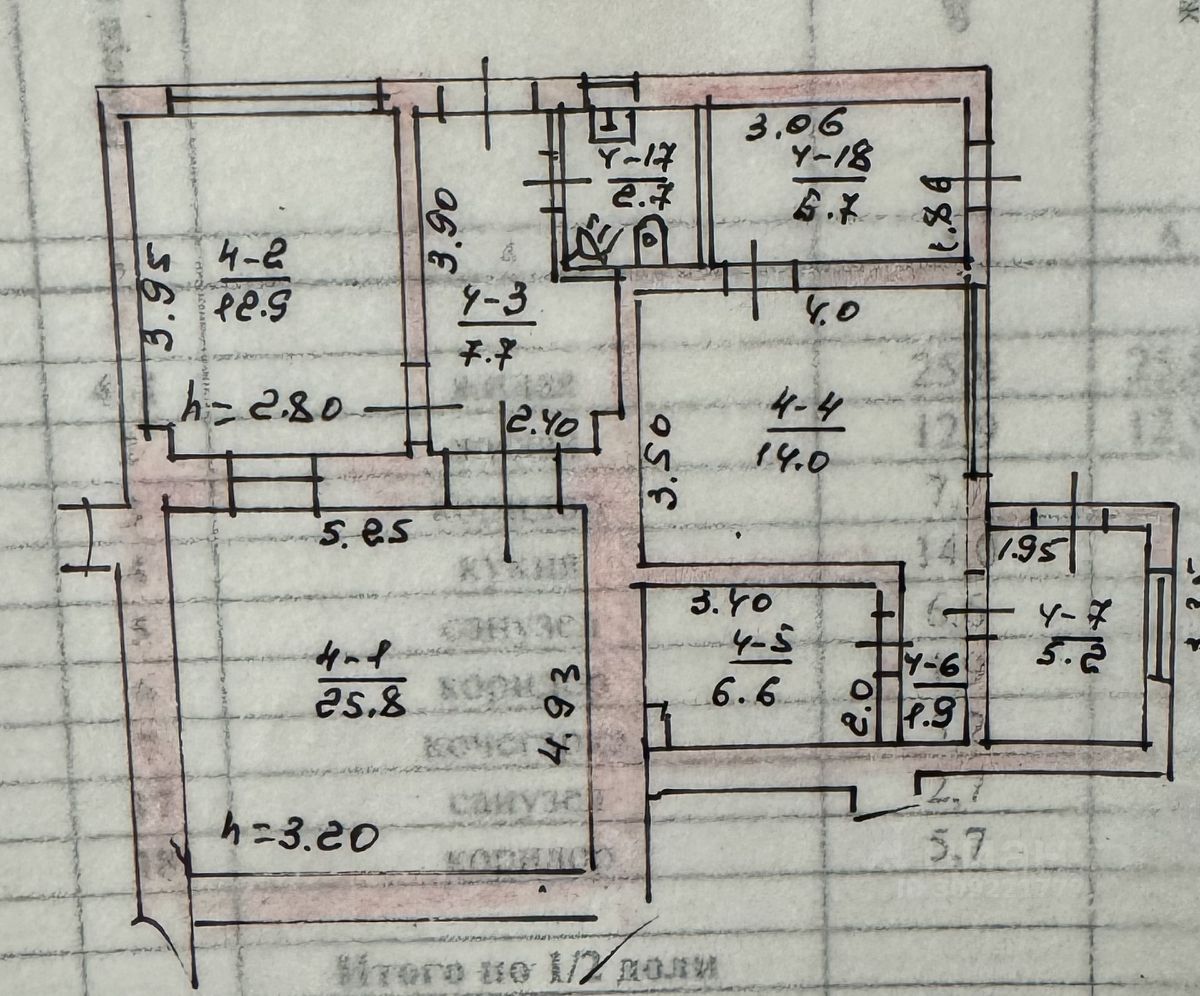 3.06
4-17
2.7
4-18
5.7
1.86
3.90
4-2
12.9
3.95
4-3
7.7
4.0
h=2.80
2.40
4-4
14.0
3.50
5.25
1.95
3.40
4-5
6.6
2.0
4-6
1.9
4-7
5.2
4-1
25.8
4.93
h=3.20
кухня
санузел
коридор
санузел
2.7
коридор
5.7
Итого по 1/2 доли